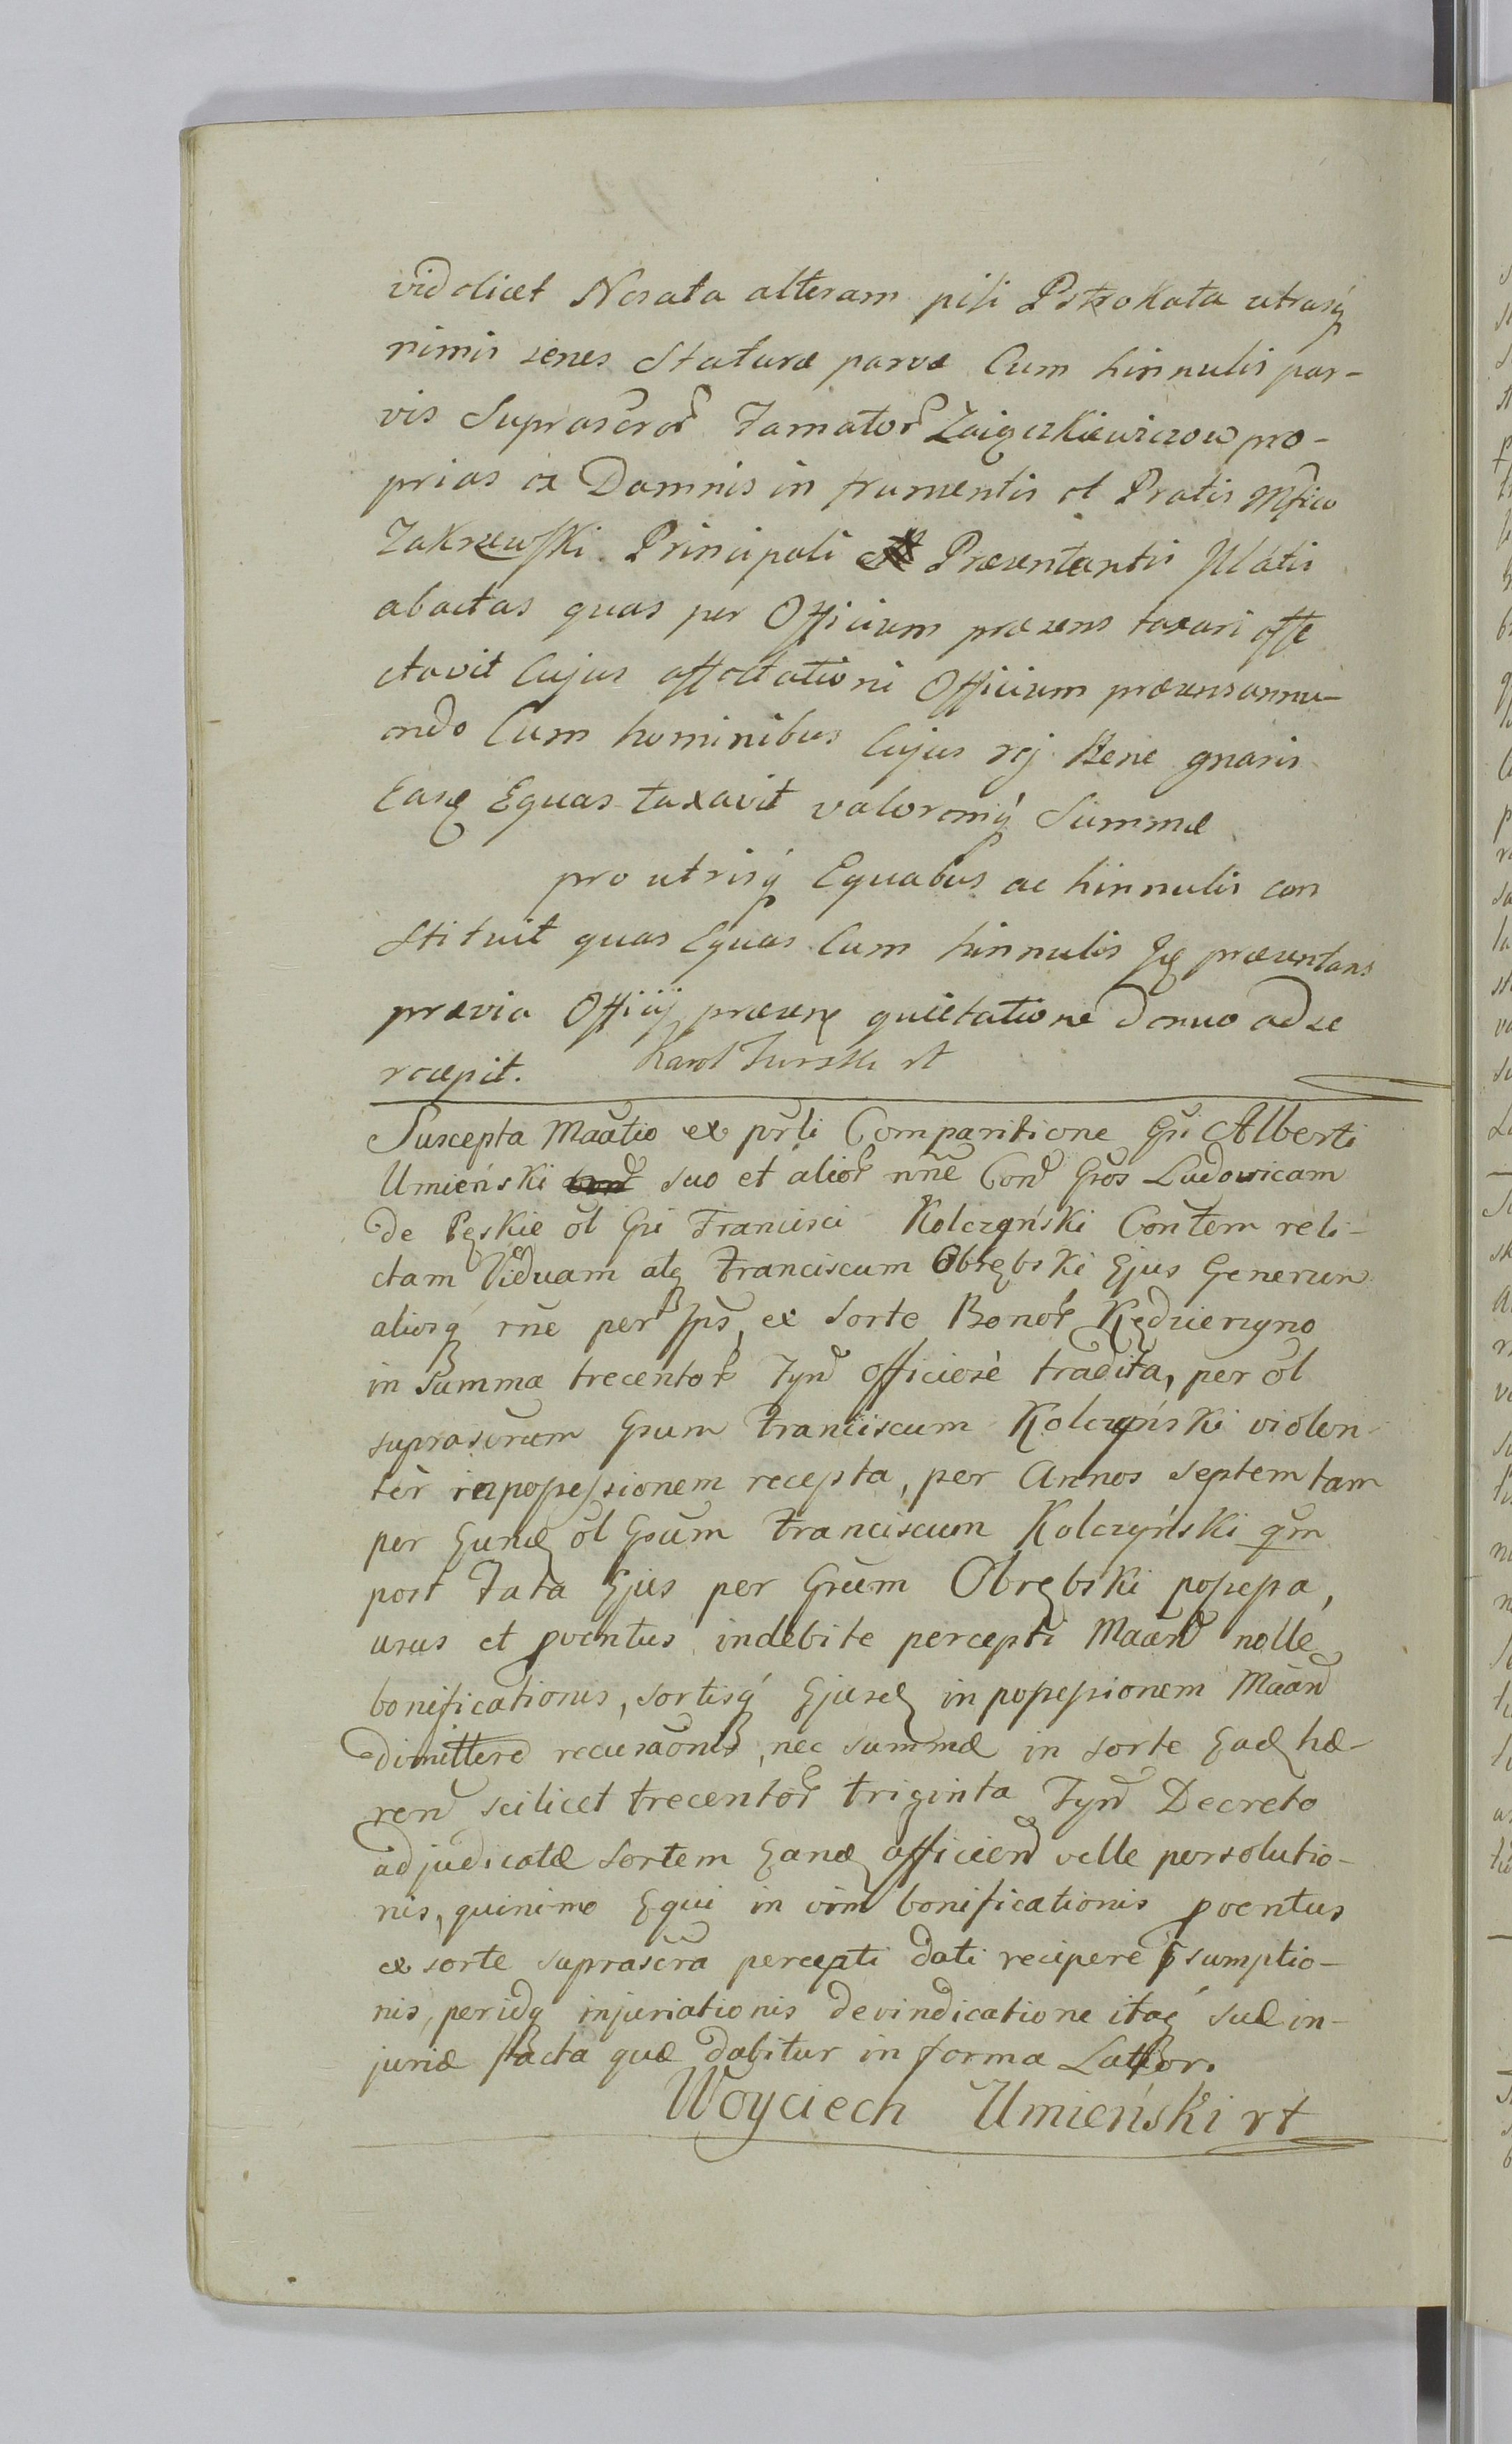 videlicet Nosata alteram pili Pstrokata utrasq
nimis senes Staturæ parvæ Cum hinnulis par-
vis Suprascror Famator Zaięczkiewiczow pro-
prias ex Damnis in frumentis et Pratis Mfico
Zakrzewski Principali Præsentantis Illatis
abactas quas per Officium præsens taxari affe
ctavit Cujus affectationi Officium præsens annu-
endo Cum hominibus Cujus rej Bene gnaris
Easq Equas taxavit valoremq Summæ
pro utrisq Equabus ac hinnulis con
stituit quas Equas Cum hinnulis præsentans
prævia Officij præsens quietatione denuo ad se
recepit. Karol Turski rt
Suscepta Maatio ex prli Comparitione Gsi Alberti
Umieński suo et alior nne Cond Gsos Ludovicam
de Pęskie ol Gsi Francisci Kolczyński Contem reli-
ctam Viduam atq Franciscum Obrębski Ejus Generum
aliosq rne per Ips, ex Sorte Bonor Kędzierzyno
in Summa trecentor Tynd officiose tradita, per ol
suprascrum Gsum Franciscum Kolczyński violen-
ter in possessionem recepta, per Annos Septem tam
per Eund ol Gsum Franciscum Kolczyński qm
post Fata Ejus per Gsum Obrębski possessa,
usus et pventus indebite percepti Maand nolle
bonificationis, Sortisq Ejusd in possessionem Maand
dimittere recusaonis, nec summæ in sorte Ead hæ-
rend scilicet trecentor triginta Tynd Decreto
adjudicatæ Sortem Eand afficiend velle persolutio-
nis, quinimo Equi in vim bonificationis pventus
ex sorte suprascra percepti dati recipere psumptio-
nis, per idq injuriationis devindicatione itaq suæ in-
juriæ facta quæ dabitur in forma Latior.
Woyciech Umieński rt